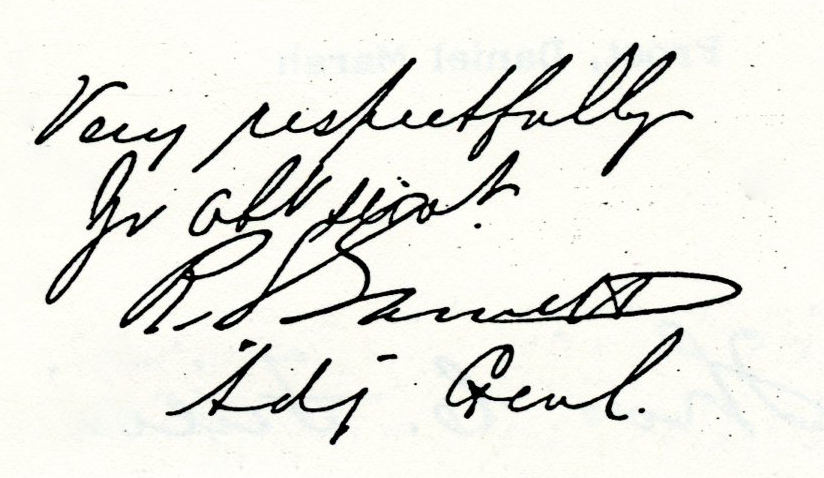 Very respectfully
Yr obt servt.
R. S. Garnett
Adj Genl.